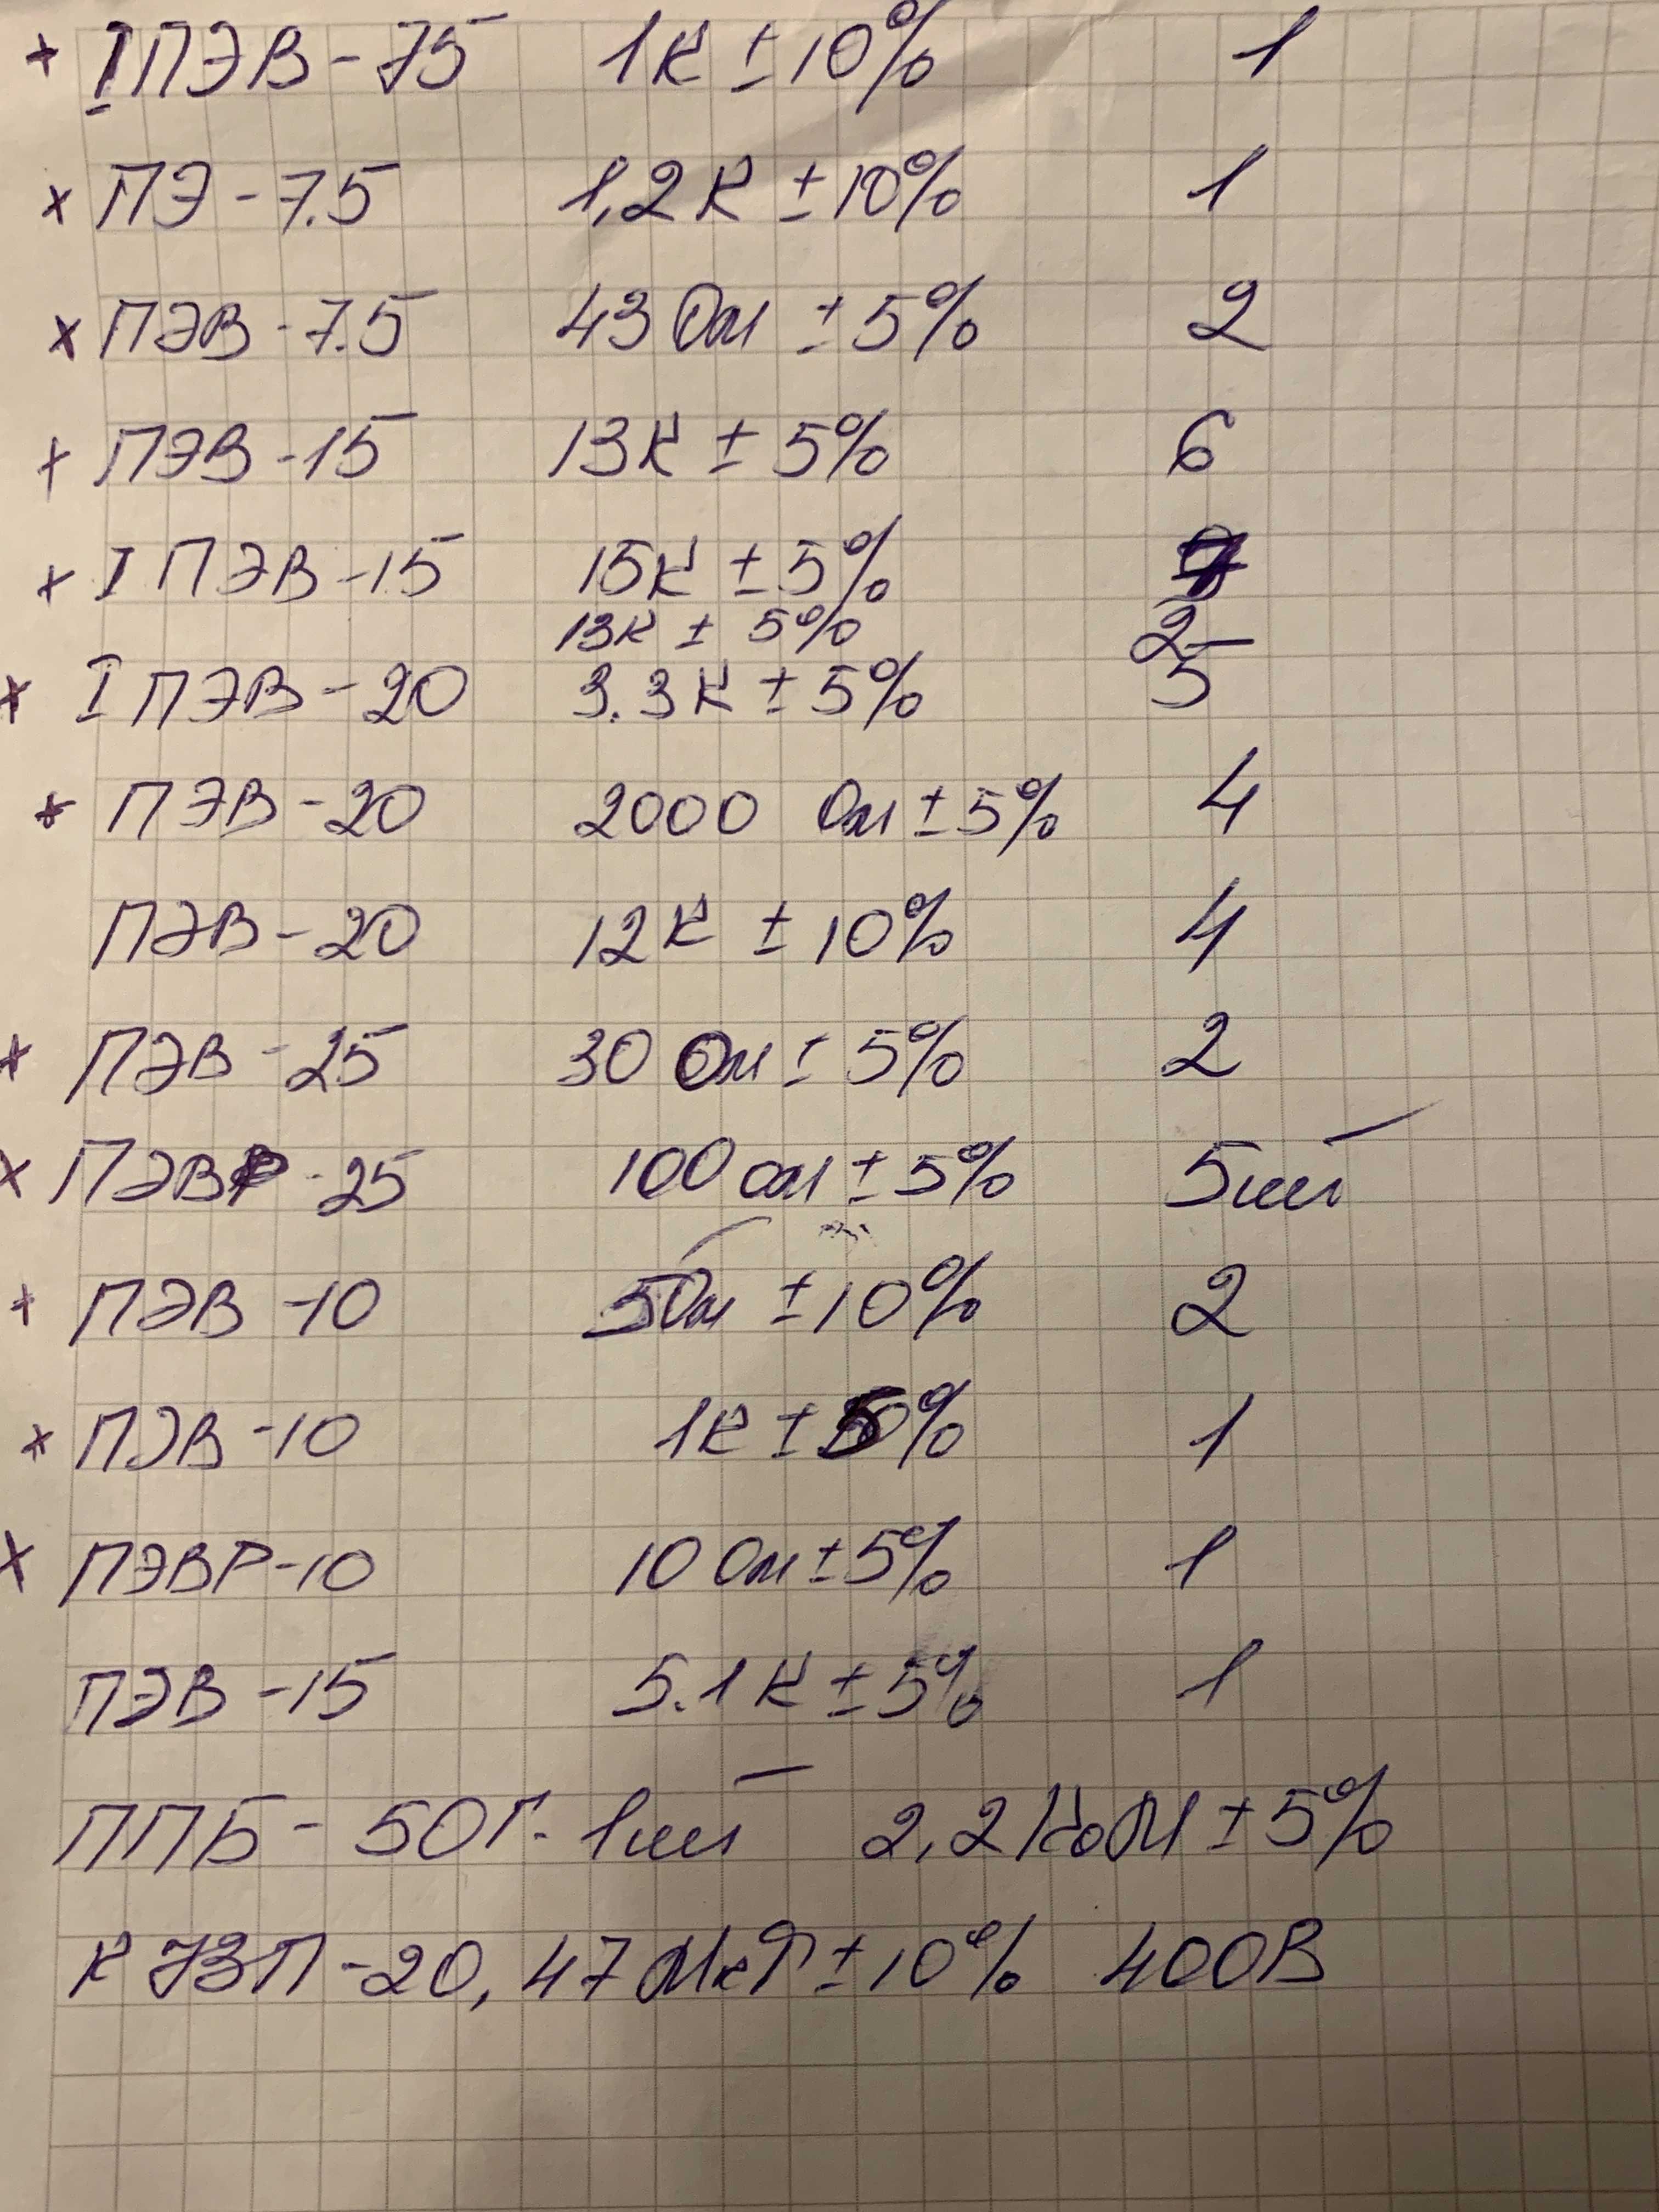 × I ПЭВ-75 1к ±10% 1
× ПЭ-7.5 1,2к ±10% 1
× ПЭВ-7.5 43 Ом ±5% 2
× ПЭВ-15 13к ±5% 6
× I ПЭВ-15 15к ±5%
13к ± 5% 2
× I ПЭВ-20 3.3к ±5% 5
× ПЭВ-20 2000 Ом ±5% 4
ПЭВ-20 12к ±10% 4
× ПЭВ-25 30 Ом ±5% 2
× ПЭВР-25 100 ом ±5% 5шт
× ПЭВ-10 5 Ом ±10% 2
× ПЭВ-10 1к ±5% 1
× ПЭВР-10 10 Ом ±5% 1
ПЭВ-15 5.1к ±5% 1
ППБ-50Г. 1шт 2,2 КоМ ±5%
К73П-20, 47 МкФ ±10% 400В